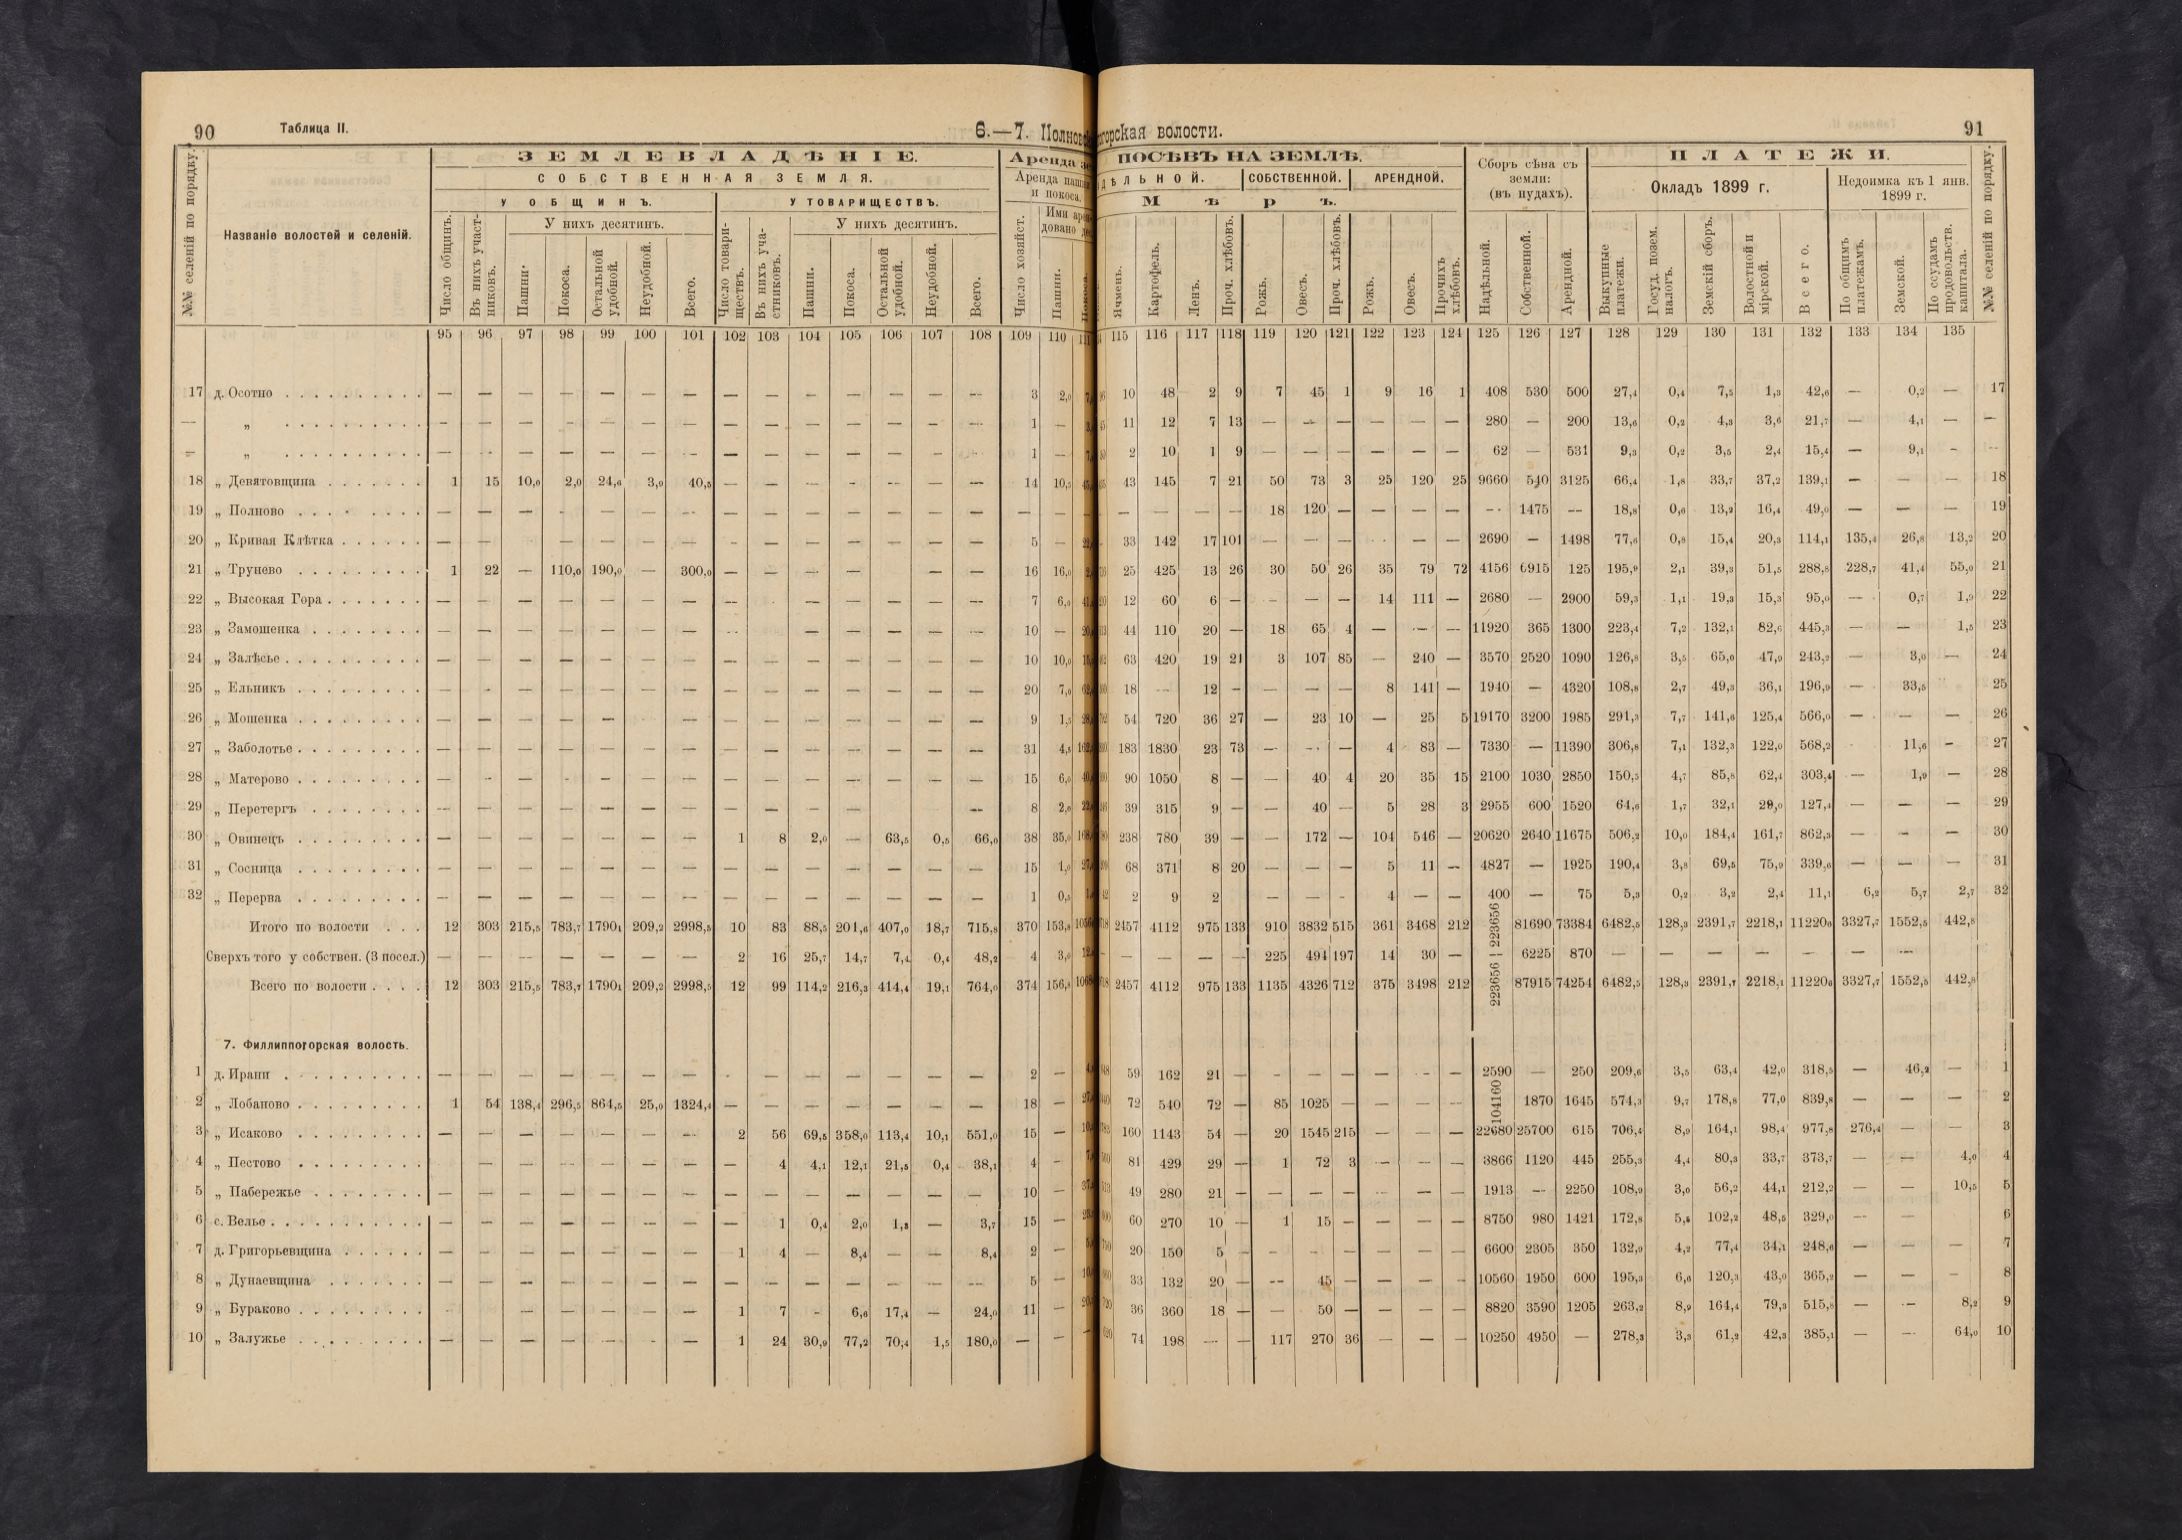 90 Таблица II. 6.—7. Полновск
ЗЕМЛЕВЛАДѢНІЕ. Аренда
СОБСТВЕННАЯ ЗЕМЛЯ. Аренда
У ОБЩИНЪ. У ТОВАРИЩЕСТВЪ. и покоса.
№№ селеній по порядку. Названіе волостей и селеній. Число общинъ. Въ нихъ участниковъ. У нихъ десятинъ. Пашни. Покоса. Остальной удобной. Неудобной. Всего. Число товариществъ. Въ нихъ участниковъ. У нихъ десятинъ. Пашни. Покоса. Остальной удобной. Неудобной. Всего. Число хозяйст. Пашни.
95 96 97 98 99 100 101 102 103 104 105 106 107 108 109 110
17 д. Осотно — — — — — — — — — — — — — — 3 2,0
— „ — — — — — — — — — — — — — — 1 —
— „ — — — — — — — — — — — — — — 1 —
18 „ Девятовщина 1 15 10,0 2,0 24,6 3,9 40,5 — — — — — — — 14 10,5
19 „ Полново — — — — — — — — — — — — — — — —
20 „ Кривая Клѣтка — — — — — — — — — — — — — — 5 —
21 „ Трунево 1 22 — 110,0 190,0 — 300,0 — — — — — — — 16 16,0
22 „ Высокая Гора — — — — — — — — — — — — — — 7 6,0
23 „ Замошенка — — — — — — — — — — — — — — 10 —
24 „ Залѣсье — — — — — — — — — — — — — — 10 10,0
25 „ Ельникъ — — — — — — — — — — — — — — 20 7,0
26 „ Мошенка — — — — — — — — — — — — — — 9 1,5
27 „ Заболотье — — — — — — — — — — — — — — 31 4,5
28 „ Матерово — — — — — — — — — — — — — — 15 6,0
29 „ Перетергъ — — — — — — — — — — — — — — 8 2,0
30 „ Овинецъ — — — — — — — 1 8 2,0 — 63,5 0,5 66,0 38 35,0
31 „ Сосница — — — — — — — — — — — — — — 15 1,0
32 „ Перерва — — — — — — — — — — — — — — 1 0,5
Итого по волости 12 303 215,5 783,7 1790,1 209,2 2998,5 10 83 88,5 201,6 407,0 18,7 715,8 370 153,8
Сверхъ того у собствен. (3 посел.) — — — — — — — 2 16 25,7 14,7 7,4 0,4 48,2 4 3,0
Всего по волости 12 303 215,5 783,7 1790,1 209,2 2998,5 12 99 114,2 216,3 414,4 19,1 764,0 374 156,8
7. Филлиппогорская волость.
1 д. Ирапи — — — — — — — — — — — — — — 2 —
2 „ Лобаново 1 54 138,4 296,5 864,5 25,0 1324,4 — — — — — — — 18 —
3 „ Исаково — — — — — — — 2 56 69,5 358,0 113,4 10,1 551,0 15 —
4 „ Пестово — — — — — — — 4 4,1 12,1 21,5 0,4 38,1 4 —
5 „ Пабережье — — — — — — — — — — — — — — 10 —
6 с. Велье — — — — — — — — 1 0,4 2,0 1,3 — 3,7 15 —
7 д. Григорьевщина — — — — — — — 1 4 — 8,4 — — 8,4 2 —
8 „ Дунаевщина — — — — — — — — — — — — — — 5 —
9 „ Бураково — — — — — — — 1 7 - 6,6 17,4 — 24,0 11 —
10 „ Залужье — — — — — — — 1 24 30,9 77,2 70,4 1,5 180,0 — —
горская волости. 91
ПОСѢВЪ НА ЗЕМЛѢ. Сборъ сѣна съ земли: (въ пудахъ). ПЛАТЕЖИ.
ДѢЛЬНОЙ. СОБСТВЕННОЙ. АРЕНДНОЙ. Окладъ 1899 г. Недоимка къ 1 янв. 1899 г.
Мѣръ.
Ячмень. Картофель. Ленъ. Проч. хлѣбовъ. Рожь. Овесъ. Проч. хлѣбовъ. Рожь. Овесъ. Прочихъ хлѣбовъ. Надѣльной. Собственной. Арендной. Выкупные платежи. Госуд. позем. налогъ. Земскій сборъ. Волостной и мірской. Всего. По общимъ платежамъ. Земской. По ссудамъ продовольств. капитала. №№ селеній по порядку.
115 116 117 118 119 120 121 122 123 124 125 126 127 128 129 130 131 132 133 134 135
10 48 2 9 7 45 1 9 16 1 408 530 500 27,4 0,4 7,5 1,3 42,6 — 0,2 — 17
11 12 7 13 — — — — — — 280 — 200 13,6 0,2 4,3 3,6 21,7 — 4,1 — —
2 10 1 9 — — — — — — 62 — 531 9,3 0,2 3,5 2,4 15,4 — 9,1 - --
43 145 7 21 50 73 3 25 120 25 9660 540 3125 66,4 1,8 33,7 37,2 139,1 — — — 18
— — — — 18 120 — — — — -- 1475 -- 18,8 0,6 13,2 16,4 49,0 — — — 19
33 142 17 101 — — — - — — 2690 — 1498 77,6 0,8 15,4 20,3 114,1 135,4 26,8 13,2 20
25 425 13 26 30 50 26 35 79 72 4156 6915 125 195,9 2,1 39,3 51,5 288,8 228,7 41,4 55,0 21
12 60 6 — - — — 14 111 — 2680 — 2900 59,3 1,1 19,3 15,3 95,0 — 0,7 1,9 22
44 110 20 — 18 65 4 — — — 11920 365 1300 223,4 7,2 132,1 82,6 445,3 — — 1,5 23
63 420 19 21 3 107 85 — 240 — 3570 2520 1090 126,8 3,5 65,0 47,9 243,2 — 3,0 — 24
18 -- 12 - — — — 8 141 — 1940 — 4320 108,8 2,7 49,3 36,1 196,9 — 33,5 25
54 720 36 27 — 23 10 — 25 5 19170 3200 1985 291,3 7,7 141,6 125,4 566,0 — — — 26
183 1830 23 73 — - — 4 83 — 7330 — 11390 306,8 7,1 132,3 122,0 568,2 11,6 - 27
90 1050 8 — — 40 4 20 35 15 2100 1030 2850 150,5 4,7 85,8 62,4 303,4 — 1,9 — 28
39 315 9 — — 40 — 5 28 3 2955 600 1520 64,6 1,7 32,1 29,0 127,4 — — — 29
238 780 39 — — 172 — 104 546 — 20620 2640 11675 506,2 10,0 184,4 161,7 862,3 — — — 30
68 371 8 20 — — — 5 11 — 4827 — 1925 190,4 3,8 69,5 75,9 339,6 — — — 31
2 9 2 — — - 4 — — 400 — 75 5,3 0,2 3,2 2,4 11,1 6,2 5,7 2,7 32
2457 4112 975 133 910 3832 515 361 3468 212 223656 81690 73384 6482,5 128,3 2391,7 2218,1 11220,6 3327,7 1552,5 442,8
— — — — 225 494 197 14 30 — — 6225 870 — — — — — — —
2457 4112 975 133 1135 4326 712 375 3498 212 223656 87915 74254 6482,5 128,3 2391,7 2218,1 11220,6 3327,7 1552,5 442,8
59 162 21 — - — — — - — 2590 — 250 209,6 3,5 63,4 42,0 318,5 — 46,2 — 1
72 540 72 — 85 1025 — — — — 104160 1870 1645 574,3 9,7 178,8 77,0 839,8 — — — 2
160 1143 54 — 20 1545 215 — — — 22680 25700 615 706,4 8,9 164,1 98,4 977,8 276,4 — — 3
81 429 29 — 1 72 3 — — — 3866 1120 445 255,3 4,4 80,3 33,7 373,7 — — 4,0 4
49 280 21 — — — — — — — 1913 -- 2250 108,9 3,0 56,2 44,1 212,2 — — 10,5 5
60 270 10 — 1 15 — — — — 8750 980 1421 172,8 5,8 102,2 48,5 329,0 — — 6
20 150 5 - - — — — — — 6600 2305 350 132,9 4,2 77,4 34,1 248,6 — — — 7
33 132 20 — -- 45 — — — — 10560 1950 600 195,3 6,6 120,3 43,0 365,2 — — — 8
36 360 18 — — 50 — — — — 8820 3590 1205 263,2 8,9 164,4 79,3 515,8 — — 8,2 9
74 198 — — 117 270 36 — — — 10250 4950 — 278,3 3,3 61,2 42,3 385,1 — — 64,0 10